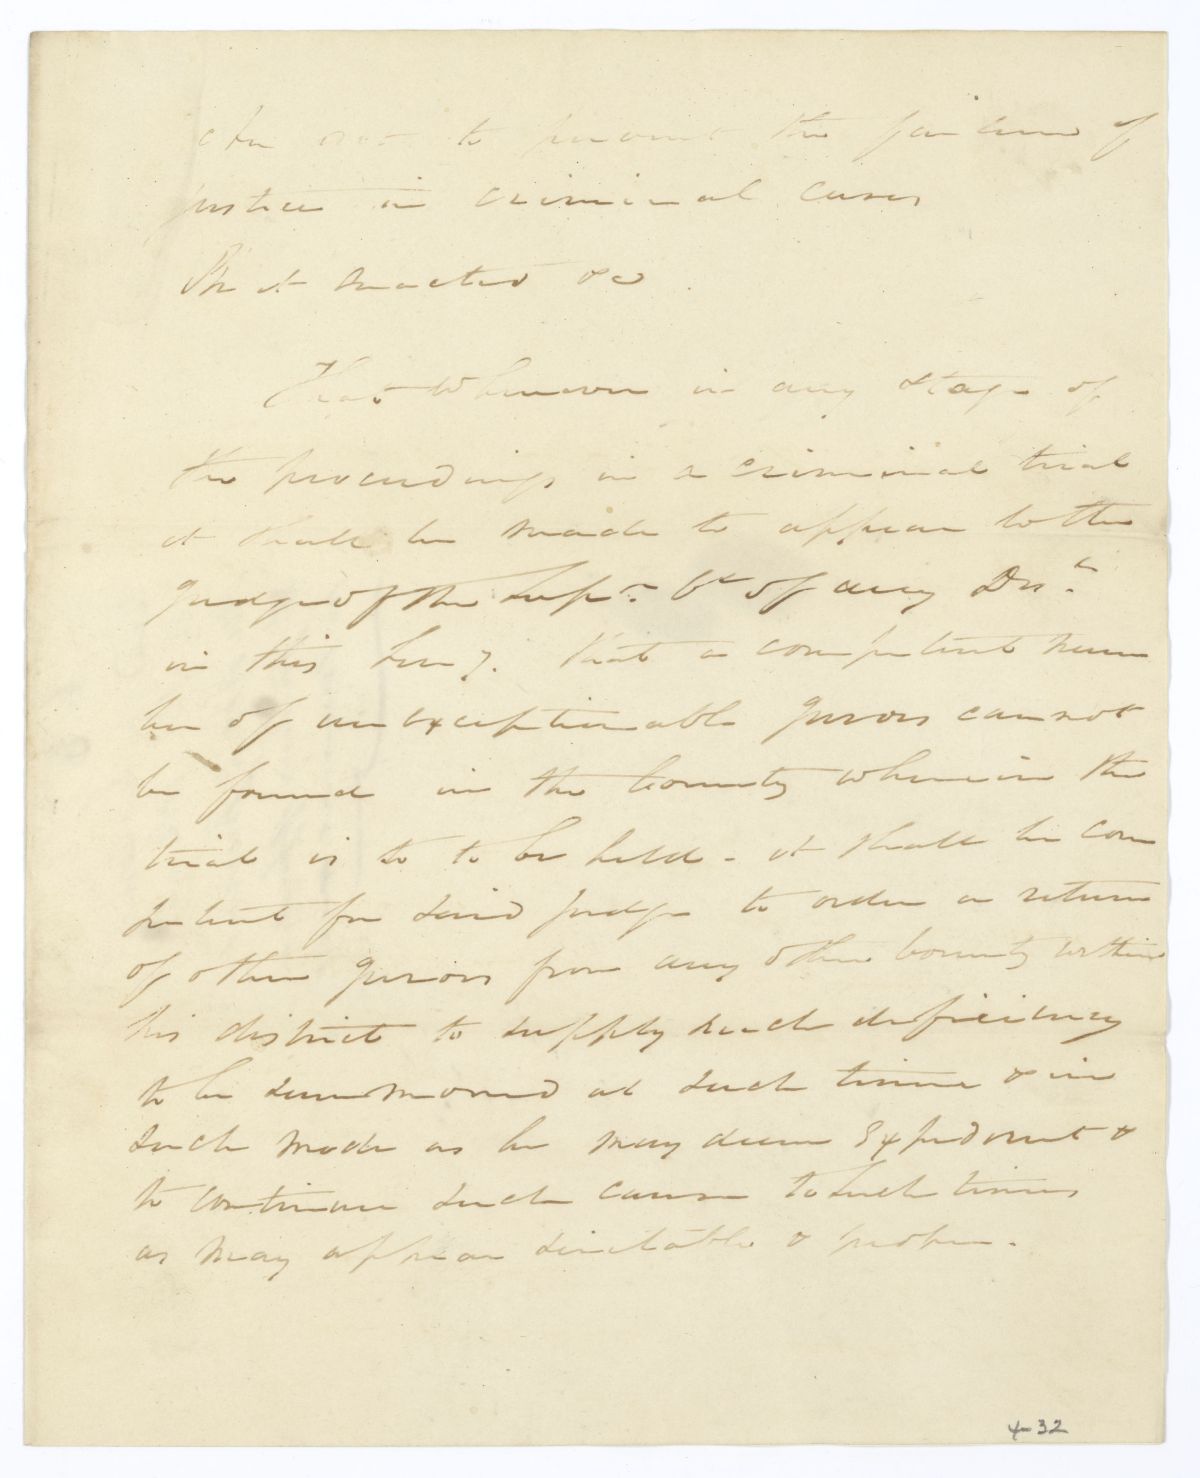 An act to prevent the failure of
justice in criminal cases
Be it enacted &c
That whenever in any stage of
the proceedings in a criminal trial
it shall be made to appear to the
judge of the Supr. Ct of any Dist
in this Terry. that a competent num
ber of unexceptionable jurors cannot
be found in the County wherein the
trial is so to be held - it shall be com
petent for said judge to order a return
of other jurors from any other County within
his district to supply such deficiency
to be summoned at such time & in
such mode as he may deem Expedient &
to continue such cause to such times
as may appear suitable & proper.
4-32